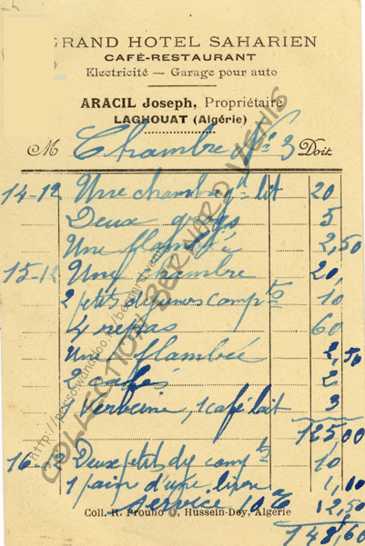 GRAND HOTEL SAHARIEN
CAFÉ-RESTAURANT
Electricité — Garage pour auto
ARACIL Joseph, Propriétaire
LAGHOUAT (Algérie)
M Chambre N° 3 Doit
14-12 Une chambre gd lit 20
Deux grogs 5
Une flambée 2,50
15-12 Une chambre 20,
2 petits déjeuners compts 10
4 repas 60
Une flambée 2,50
2 cafés 2
Verveine, 1 café lait 3
125,00
16-12 Deux petits dej compts 10
1 pain d'une livre 1,10
Service 10% 12,50
148,60
Coll. R. Prouho, Hussein-Dey, Algérie
COLLECTION BERNARD VENIS